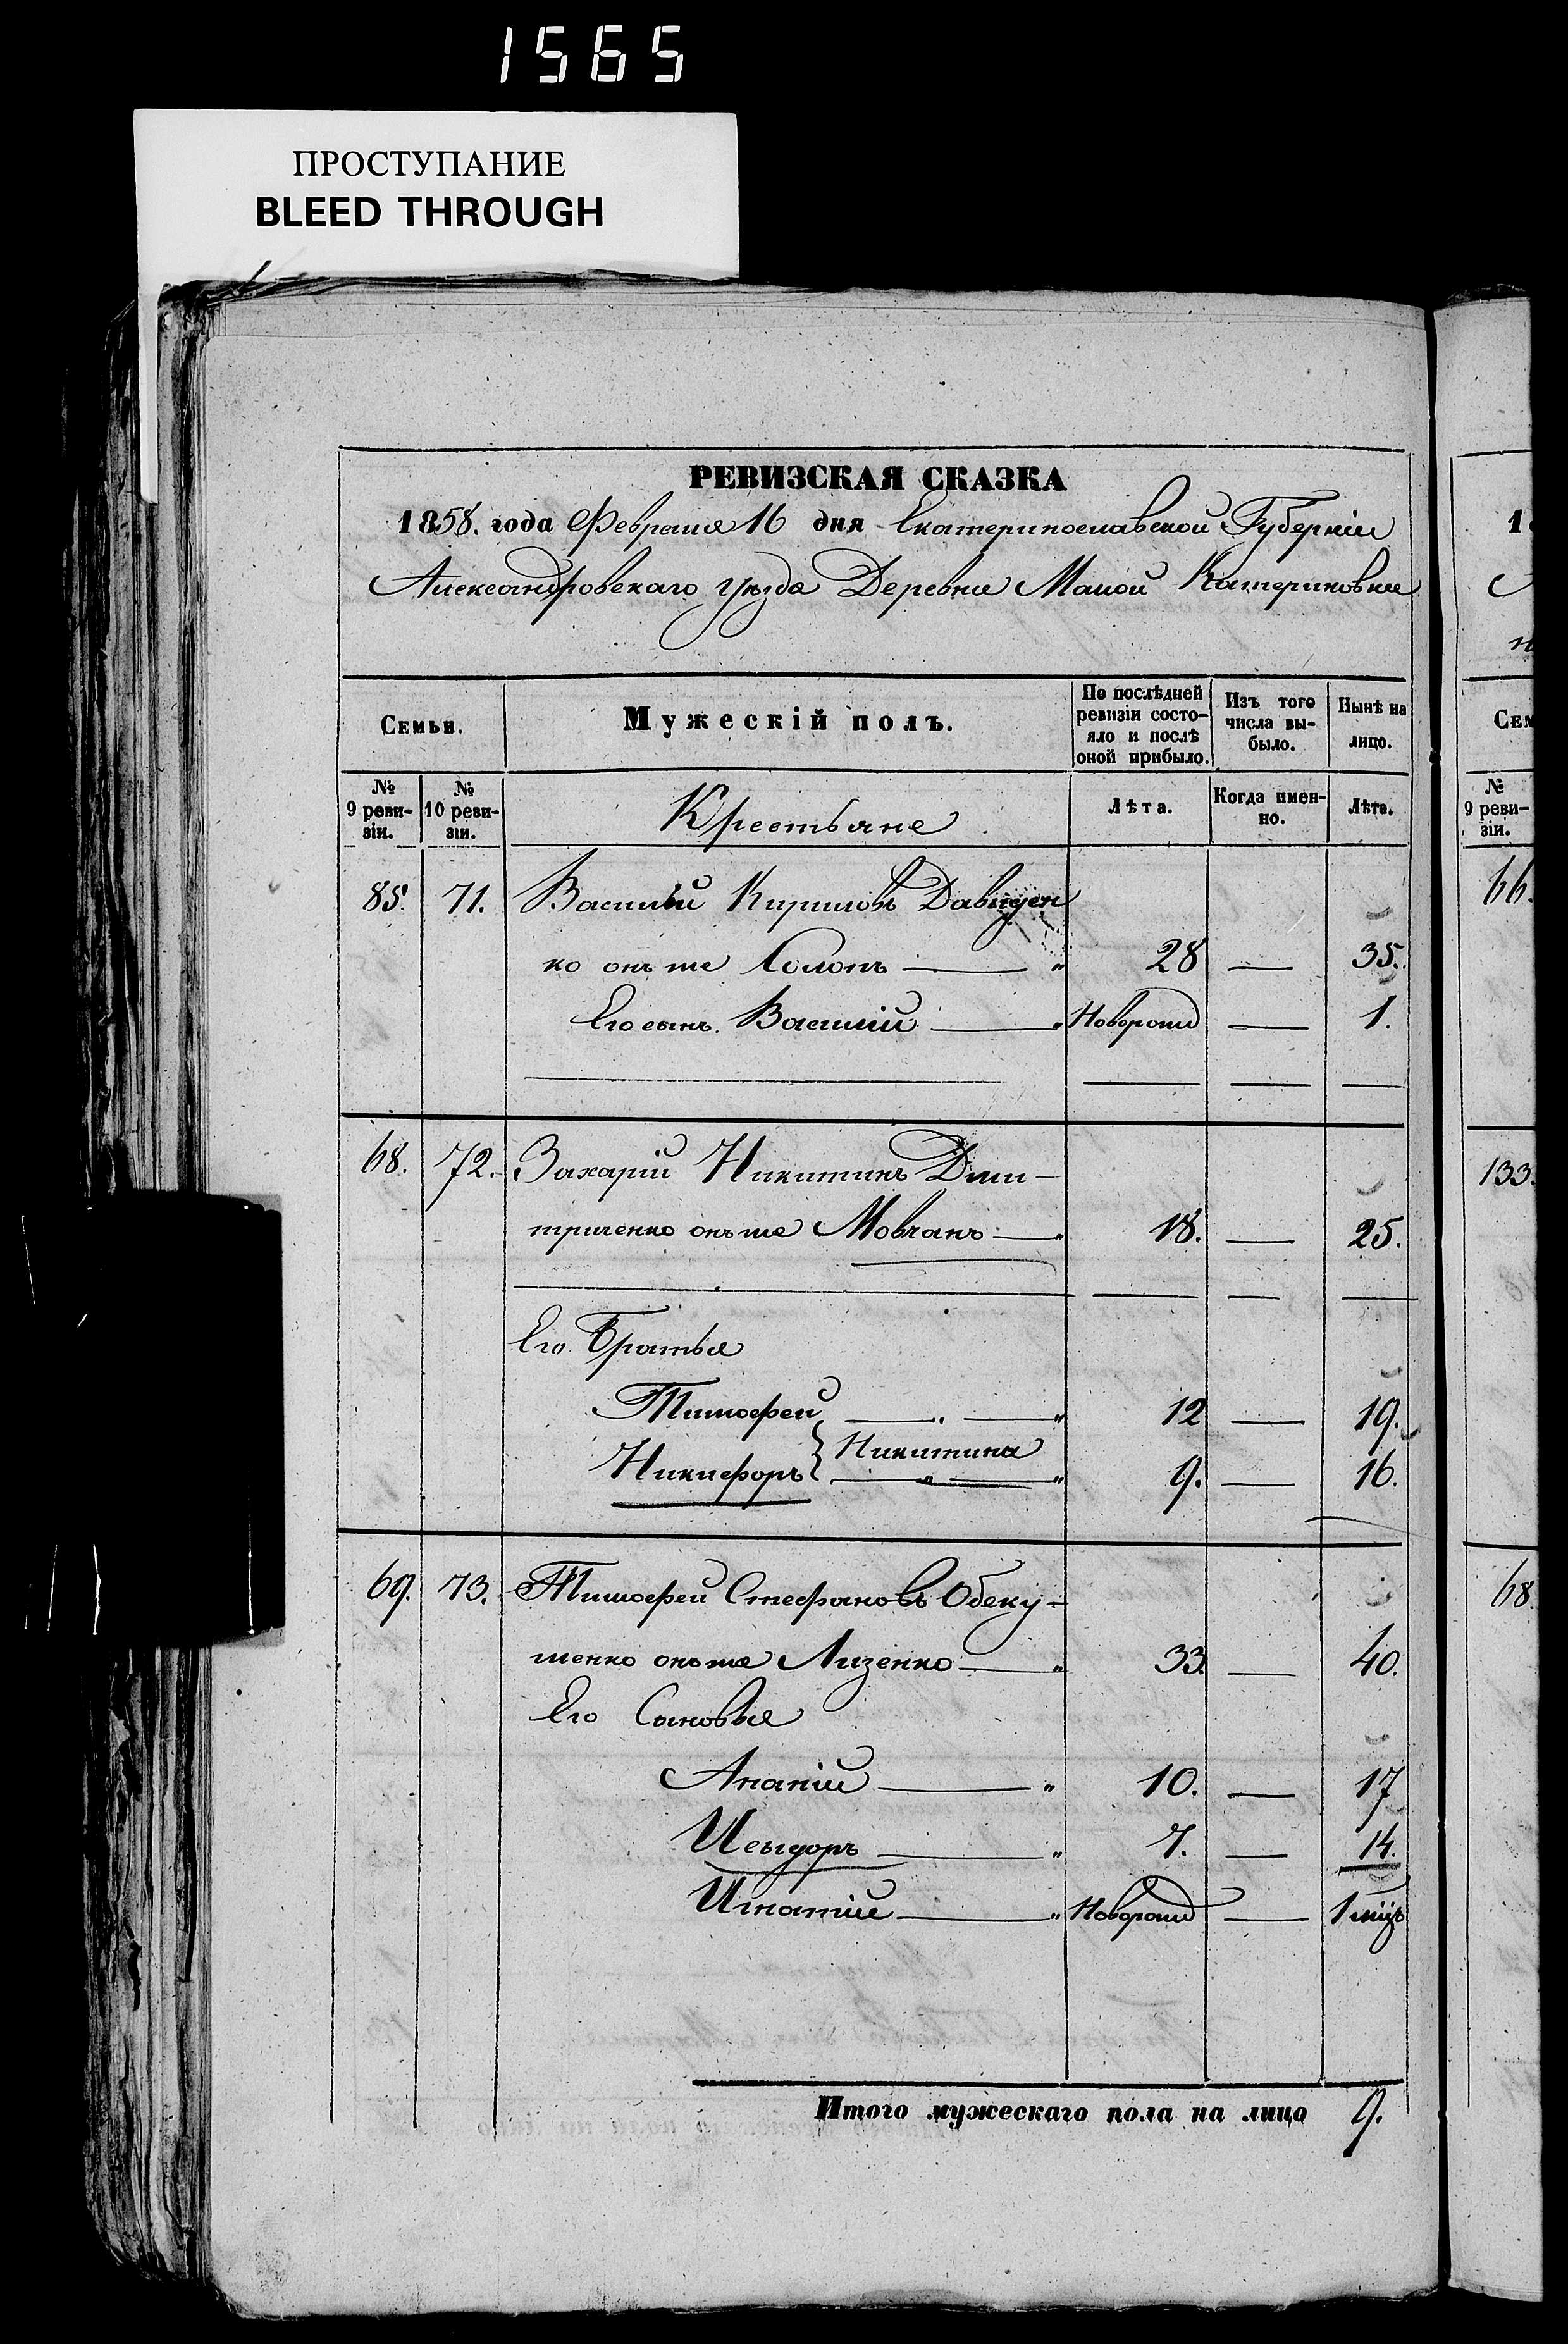 1565
ПРОСТУПАНИЕ
BLEED THROUGH
РЕВИЗСКАЯ СКАЗКА
1858. года Февраля 16 дня Екатеринославской Губерніи
Александровскаго уѣзда Деревни Малой Катериновки
Семьи. Мужескій полъ. По послѣдней ревизіи состояло и послѣ оной прибыло. Изъ того числа выбыло. Нынѣ на лицо.
№ 9 ревизіи. № 10 ревизіи. Крестьяне Лѣта. Когда именно. Лѣта.
85. 71. Василій Кириловъ Давиден
ко онъ же Солопъ — " 28 — 35.
Его сынъ. Василій — " Новорожд — 1.
68. 72. Захарій Никитинъ Дми-
триченко онъ же Мовчанъ — " 18. — 25.
Его Братья
Тимофей — " — " 12 — 19.
Никифоръ } Никитина — " — " 9. — 16.
69. 73. Тимофей Стефановъ Обеку-
шенко онъ же Лизенко — " 33. — 40.
Его Сыновья
Ананій — " 10. — 17
Исыдоръ — " 7. — 14.
Игнатій — " Новорожд — 1 мѣць
Итого мужескаго пола на лицо 9.
1
№
9 реви-
зіи.
66.
133.
68.